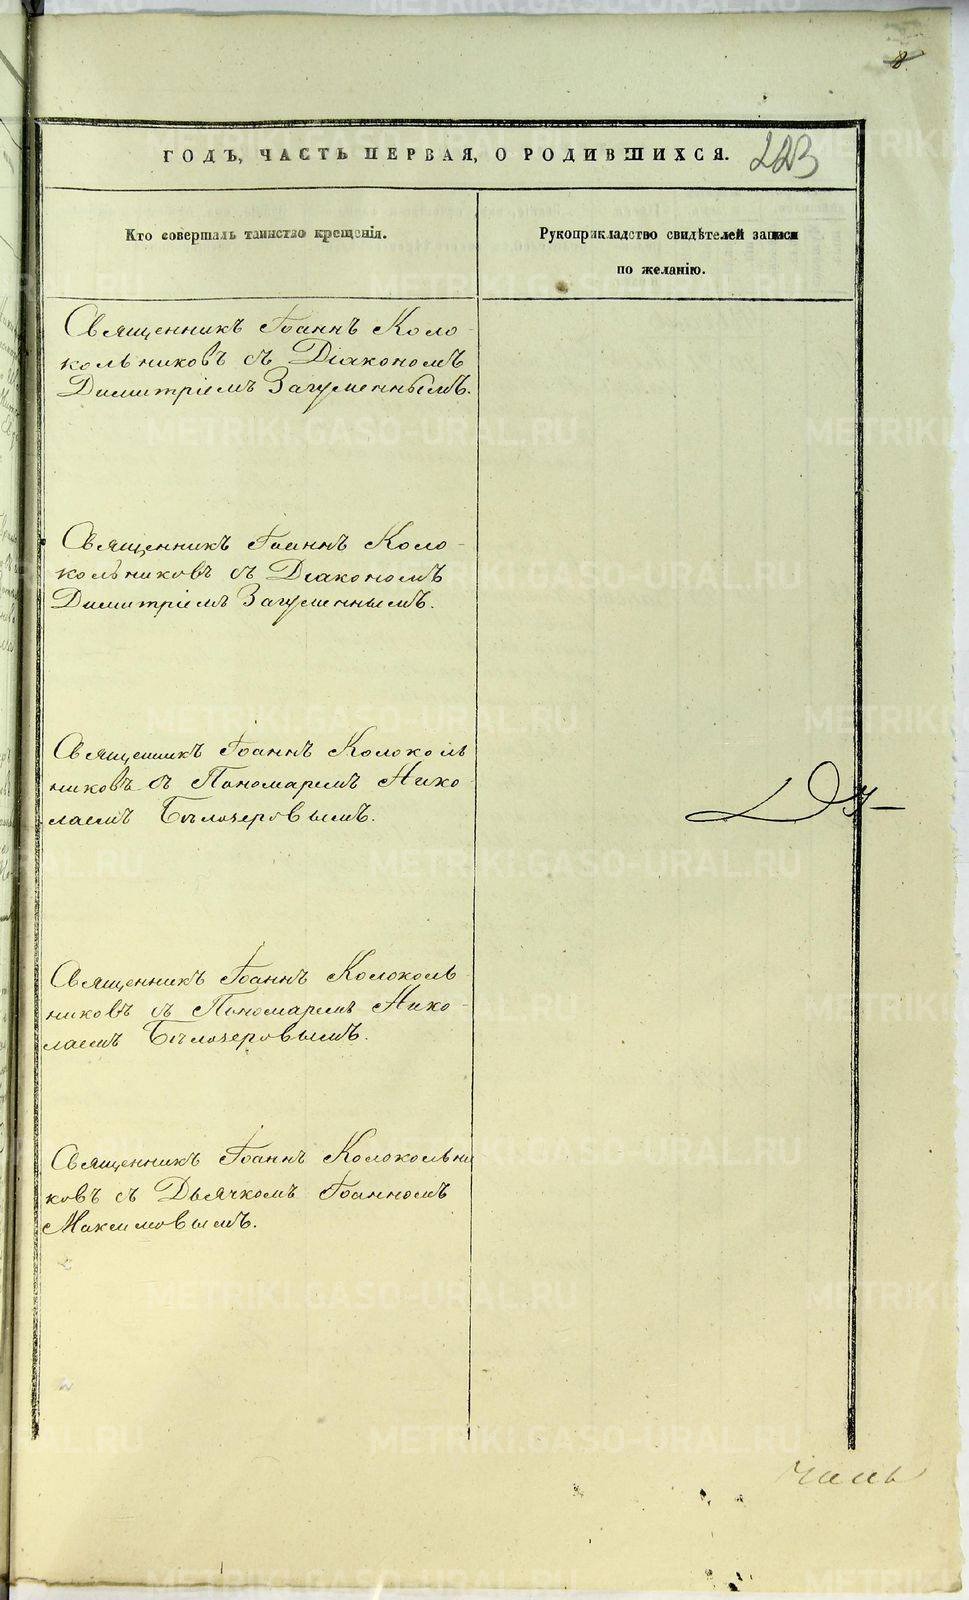 8
ГОДЪ, ЧАСТЬ ПЕРВАЯ, О РОДИВШИХСЯ. 223
Кто совершалъ таинство крещенія.
Рукоприкладство свидѣтелей записи
по желанію.
Священникъ Іоаннъ Коло-
кольниковъ съ Діакономъ
Димитріемъ Загуменнымъ.
Священникъ Іоаннъ Коло-
кольниковъ съ Діакономъ
Димитріемъ Загуменнымъ.
Священникъ Іоаннъ Колоколь
никовъ съ Пономаремъ Нико
лаемъ Бѣлозеровымъ.
Священникъ Іоаннъ Колоколь
никовъ съ Пономаремъ Нико-
лаемъ Бѣлозеровымъ.
Священникъ Іоаннъ Колокольни
ковъ съ Дьячкомъ Іоанномъ
Максимовымъ.
METRIKI.GASO-URAL.RU